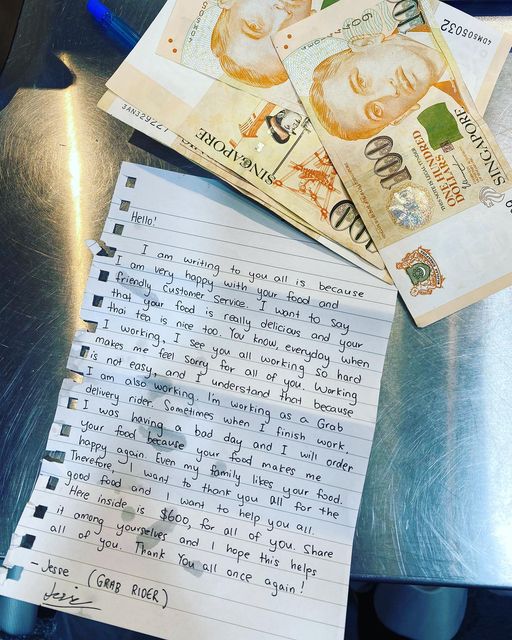 4DM505032
3AN329221
SINGAPORE
100
SINGAPORE
ONE HUNDRED
DOLLARS
100
Hello!
I am writing to you all is because
I am very happy with your food and
friendly customer service. I want to say
that your food is really delicious and your
thai tea is nice too. You know, everyday when
I working, I see you all working so hard
makes me feel sorry for all of you. Working
is not easy, and I understand that because
I am also working. I'm working as a Grab
delivery rider. Sometimes when I finish work,
I was having a bad day and I will order
your food because your food makes me
happy again. Even my family likes your food.
Therefore, I want to thank you all for the
good food and I want to help you all.
Here inside is $600, for all of you. Share
it among yourselves and I hope this helps
all of you. Thank You all once again!
- Jesse (GRAB RIDER)